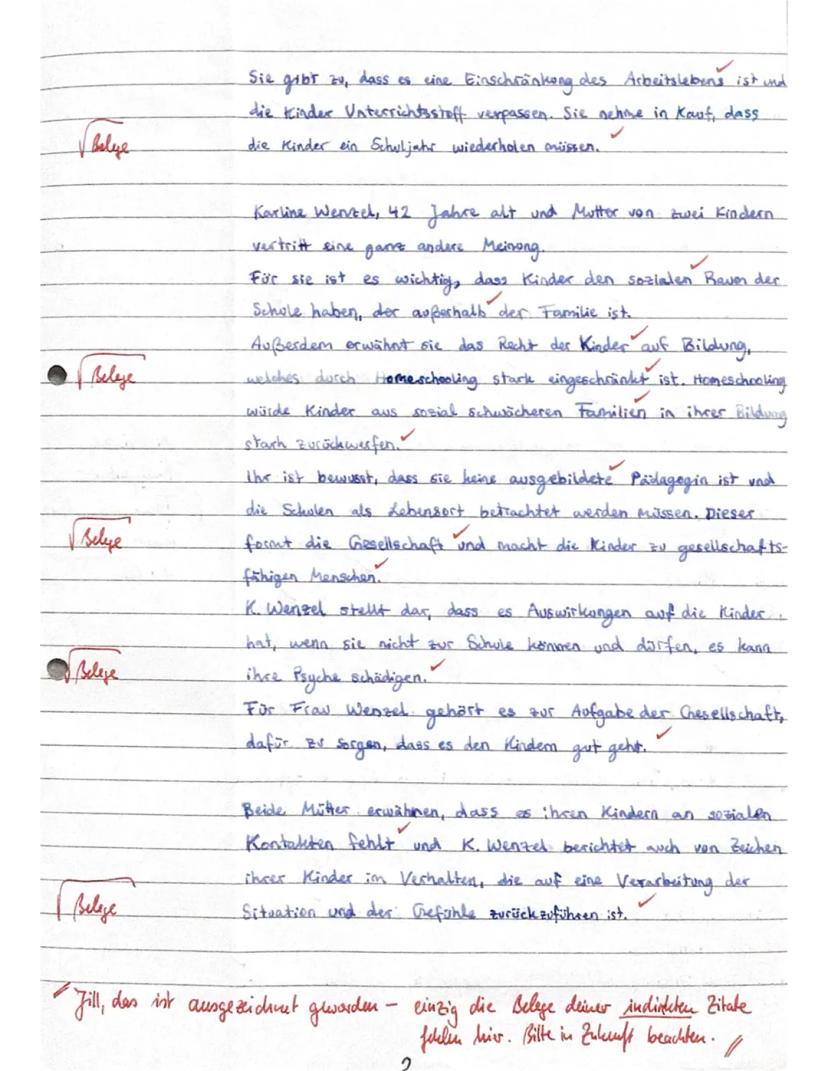 Sie gibt zu, dass es eine Einschränkung des Arbeitslebens ist und
die Kinder Unterrichtsstoff verpassen. Sie nehme in Kauf, dass
√Belege
die Kinder ein Schuljahr wiederholen müssen.
Karline Wenzel, 42 Jahre alt und Mutter von zwei Kindern
vertritt eine ganz andere Meinung.
Für sie ist es wichtig, dass Kinder den sozialen Raum der
Schule haben, der außerhalb der Familie ist.
Außerdem erwähnt sie das Recht der Kinder auf Bildung,
√Belege
welches durch Homeschooling stark eingeschränkt ist. Homeschooling
würde Kinder aus sozial schwächeren Familien in ihrer Bildung
stark zurückwerfen.
Ihr ist bewusst, dass sie keine ausgebildete Pädagogin ist und
die Schulen als Lebensort betrachtet werden müssen. Dieser
√Belege
formt die Gesellschaft und macht die Kinder zu gesellschafts-
fähigen Menschen.
K. Wenzel stellt dar, dass es Auswirkungen auf die Kinder
hat, wenn sie nicht zur Schule können und dürfen, es kann
√Belege
ihre Psyche schädigen.
Für Frau Wenzel gehört es zur Aufgabe der Gesellschaft,
dafür zu sorgen, dass es den Kindern gut geht.
Beide Mütter erwähnen, dass es ihren Kindern an sozialen
Kontakten fehlt und K. Wenzel berichtet auch von Zeichen
ihrer Kinder im Verhalten, die auf eine Verarbeitung der
√Belege
Situation und der Gefühle zurückzuführen ist.
Jill, das ist ausgezeichnet geworden – einzig die Belege deiner indirekten Zitate
fehlen hier. Bitte in Zukunft beachten.
2